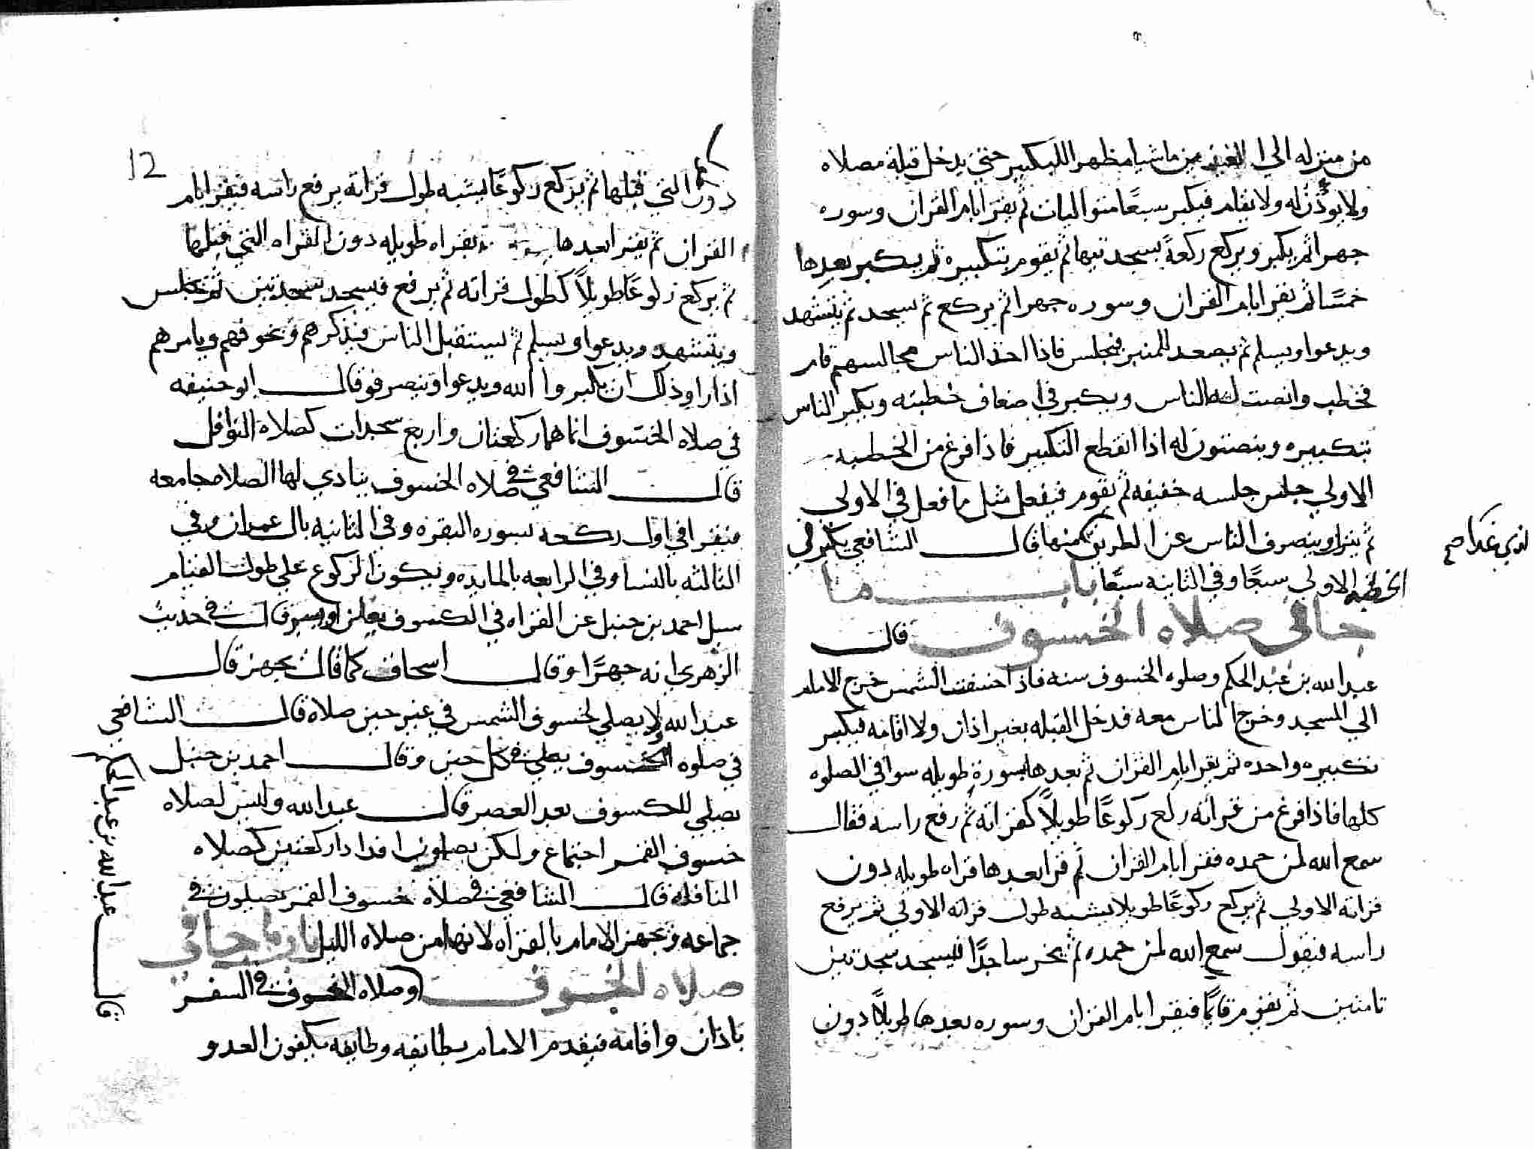 من منزله الي العيدين ماشيا مظهرا للتكبير حتي يدخل قبلة مصلاه
ولا يوذن له ولا يقام فيكبر سبعا متواليات ثم يقرا بام القران وسوره
جهرا ثم يكبر ويركع ركعة بسجدتيها ثم يقوم بتكبيره ثم يكبر بعدها
خمسًا ثم يقرا بام القران وسوره جهرا ثم يركع ثم يسجد ثم يتشهد
ويدعوا ويسلم ثم يصعد المنبر فيجلس فاذا اخذ الناس مجالسهم قام
فخطب وانصت له الناس ويكبر في اضعاف خطبته ويكبر الناس
بتكبيره وينصتون له اذا انقطع التكبير فاذا فرغ من الخطبه
الاولي جلس جلسه خفيفه ثم يقوم فيفعل مثل ما فعل في الاولي
ثم ينزل وينصرف الناس عن الطريق منها قال الشافعي يكبر في
الخطبه الاولي سبعًا وفي الثانيه سبعًا باب ما
جا في صلاه الخسوف قال
عبد الله بن عبد الحكم وصلوه الخسوف سنه فاذا خسفت الشمس خرج الامام
الي المسجد وخرج الناس معه فدخل القبله بغير اذان ولا اقامه فيكبر
تكبيره واحده ثم يقرا بام القران ثم بعدها بسورة طويله سرا في الصلوه
كلها فاذا فرغ من قراته ركع ركوعًا طويلاً كقراته ثم رفع راسه فقال
سمع الله لمن حمده فقرا بام القران ثم قرا بعدها قراه طويله دون
قراته الاولي ثم يركع ركوعًا طويلا يشبه طول قراته الاولي ثم يرفع
راسه فيقول سمع الله لمن حمده ثم يخر ساجدًا فيسجد سجدتين
تامتين ثم يقوم قايمًا فيقرا بام القران وسوره بعدها طويلاً دون
دون التي قبلها ثم يركع ركوعًا يشبه طول قراته يرفع راسه فيقرا بام
القران ثم يقرا بعدها بقراه طويله دون القراه التي قبلها
ثم يركع ركوعًا طويلاً كطول قراته ثم يرفع فيسجد سجدتين ثم يجلس
ويتشهد ويدعوا ويسلم ثم يستقبل الناس فيذكرهم ويخوفهم ويامرهم
اذا راوا ذلك ان يكبروا الله ويدعوا وينصرفو قال ابو حنيفه
في صلاه الخسوف انما هما ركعتان واربع سجدات كصلاه النوافل
قال الشافعي في صلاه الخسوف ينادي لها الصلاه جامعه
فيقرا في اول ركعه بسوره البقره وفي الثانيه بال عمران وفي
الثالثه بالنسا وفي الرابعه بالمايده ويكون الركوع علي طول القيام
سيل احمد بن حنبل عن القراه في الكسوف يعلن او يسر قال في حديث
الزهري انه جهرًا وقال اسحاق كما قال يجهر قال
عبد الله ولا يصلي لخسوف الشمس في غير حين صلاه قال الشافعي
في صلوه الكسوف يصلي في كل حين وقال احمد بن حنبل
يصلي للكسوف بعد العصر قال عبد الله وليس لصلاه
خسوف القمر اجتماع ولكن يصلون افذاذا ركعتين كصلاه
النافله قال الشافعي في صلاه خسوف القمر يصلون في
جماعه ويجهر الامام بالقراه لانها من صلاه الليل باب ما جا في
صلاه الخوف وصلاه الخوف في السفر
باذان واقامه فيقدم الامام بطايفه وطايفه يكفون العدو
قال عبد الله بن عبد الحكم
12